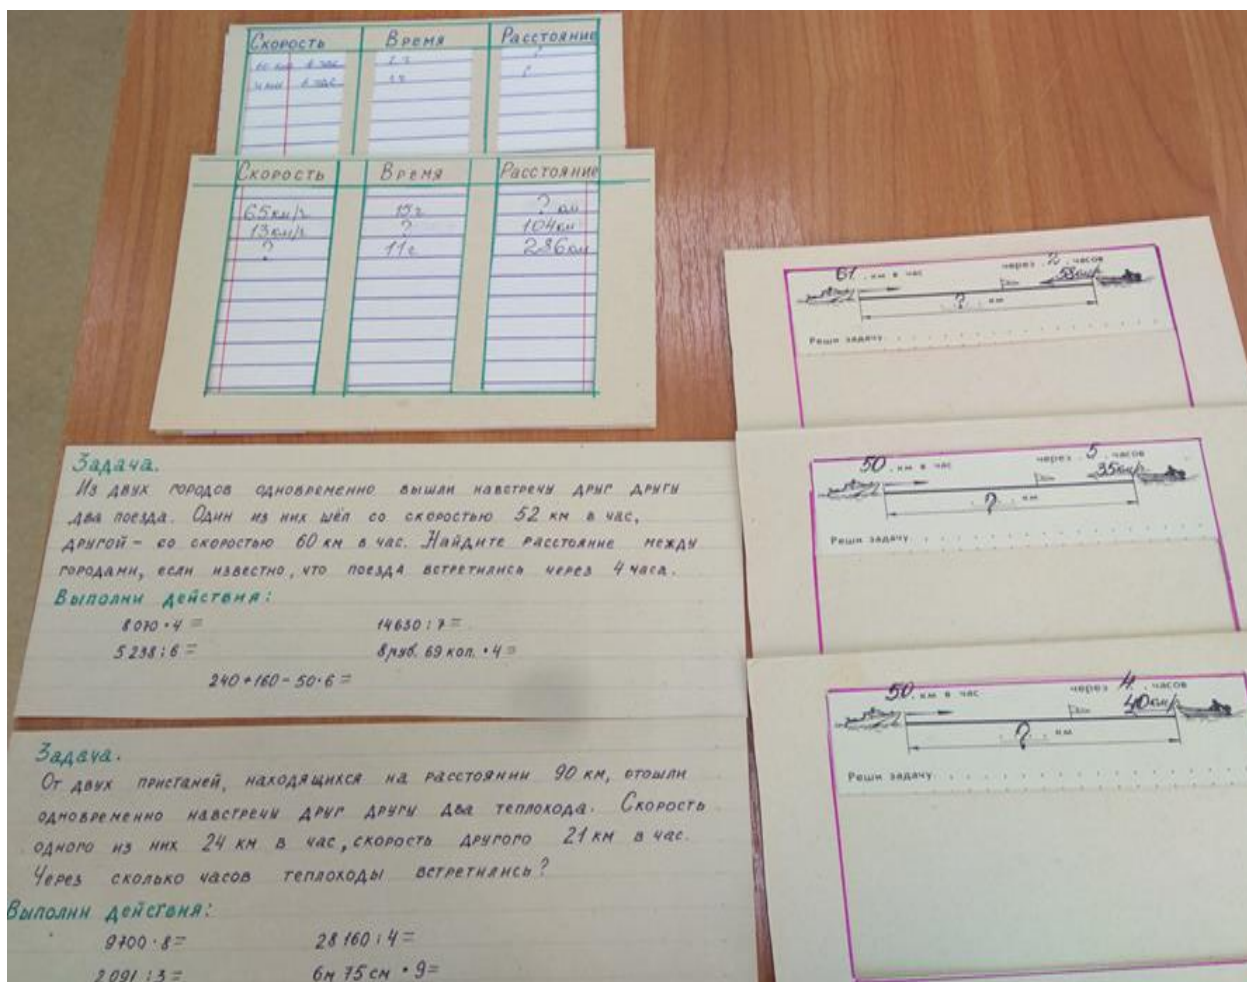 Скорость Время Расстояние
км в час 2 ч ?
км в час ?
Скорость Время Расстояние
65 км/ч 15 ч ? км
13 км/ч ? 104 км
? 11 ч 286 км
Задача.
Из двух городов одновременно вышли навстречу друг другу
два поезда. Один из них шёл со скоростью 52 км в час,
другой – со скоростью 60 км в час. Найдите расстояние между
городами, если известно, что поезда встретились через 4 часа.
Выполни действия:
8070 · 4 = 14630 : 7 =
5238 : 6 = 8 руб. 69 коп. · 4 =
240 + 160 - 50 · 6 =
Задача.
От двух пристаней, находящихся на расстоянии 90 км, отошли
одновременно навстречу друг другу два теплохода. Скорость
одного из них 24 км в час, скорость другого 21 км в час.
Через сколько часов теплоходы встретились?
Выполни действия:
9700 · 8 = 28160 : 4 =
2091 : 3 = 6м 75 см · 9 =
61 км в час через 2 часов
58 км/ч
? км
Реши задачу
50 км в час через 5 часов
35 км/ч
? км
Реши задачу
50 км в час через 4 часов
40 км/ч
? км
Реши задачу